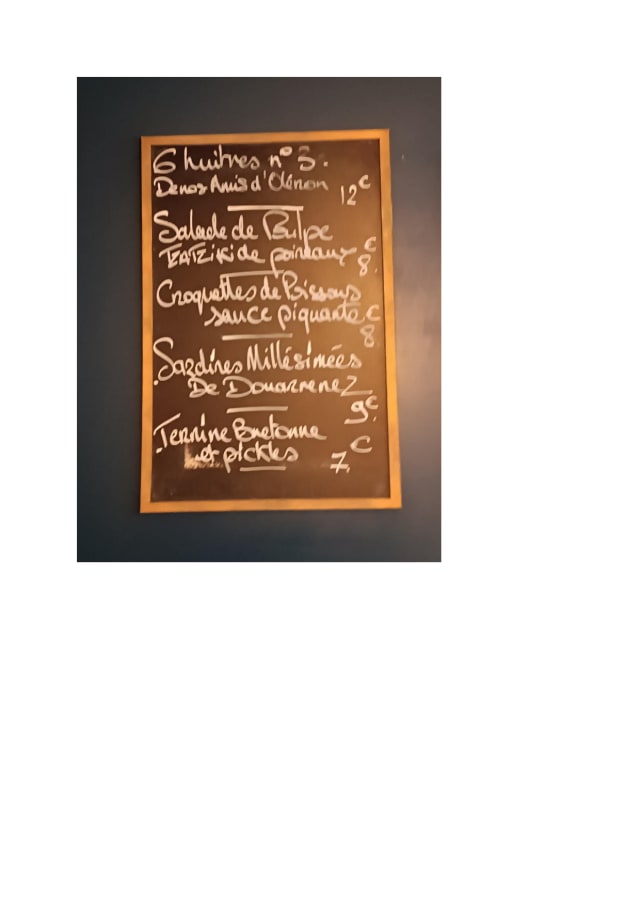 6 huitres n° 3.
De nos Amis d'Oléron
12€
Salade de Poulpe
TZATZiKi de poireaux €
8.
Croquettes de Poissons
sauce piquante €
8
.Sardines Millésimées
De Douarnenez
9€.
.Terrine Bretonne
et pickles €
7.